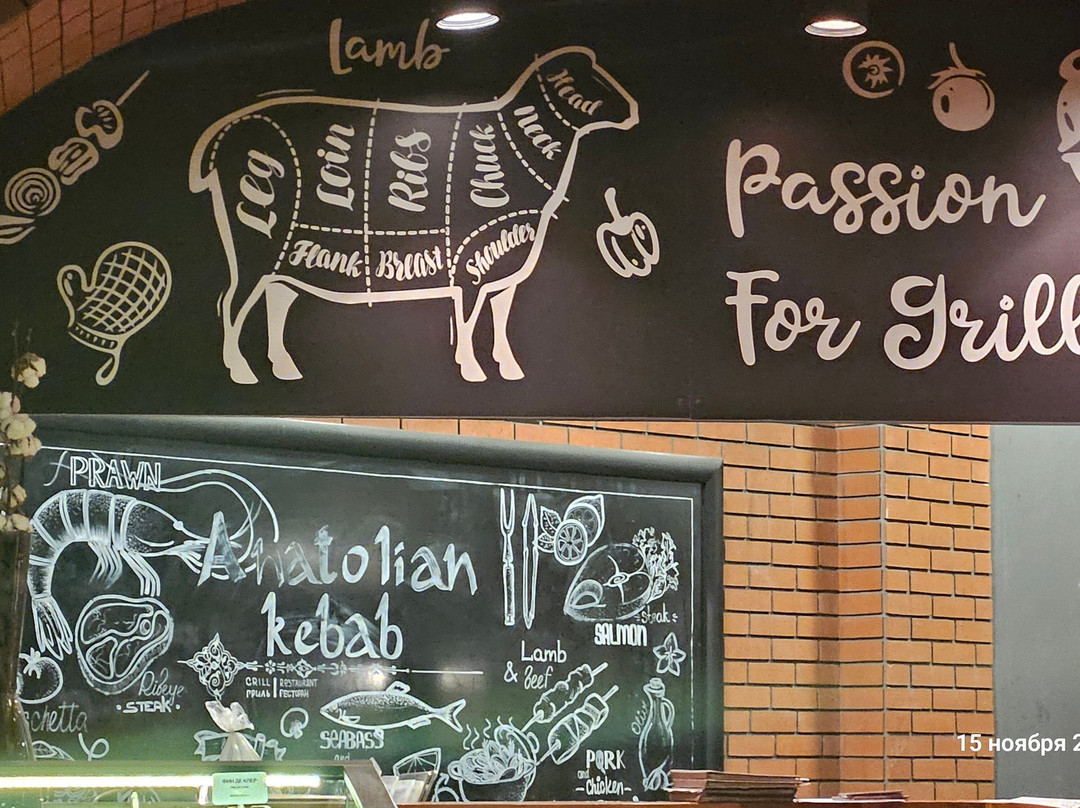 Lamb
Head
Neck
Leg
Loin
Ribs
Chuck
Flank
Breast
Shoulder
Passion
For Grill
PRAWN
Anatolian
kebab
Ribeye
STEAK
chetta
GRILL
ГРИЛЬ
RESTAURANT
РЕСТОРАН
SEABASS
and
Lamb
& Beef
Steak
SALMON
PORK
and
-chicken-
15 ноября 2